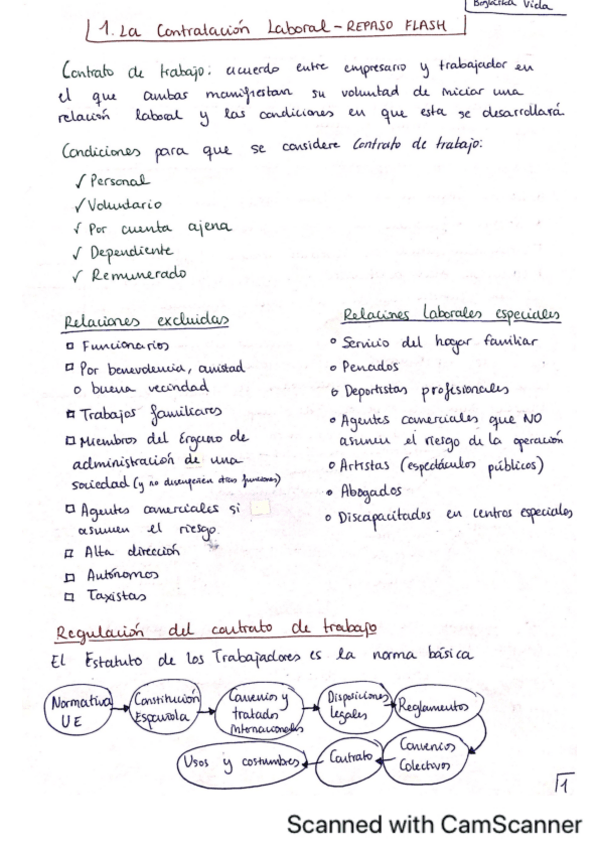 Vida
1. La Contratación Laboral - REPASO FLASH
Contrato de trabajo: acuerdo entre empresario y trabajador en
el que ambas manifiestan su voluntad de iniciar una
relación laboral y las condiciones en que esta se desarrollará
Condiciones para que se considere Contrato de trabajo:
✓ Personal
✓ Voluntario
✓ Por cuenta ajena
✓ Dependiente
✓ Remunerado
Relaciones excluidas
Funcionarios
Por benevolencia, amistad
o buena vecindad
Trabajos familiares
Miembros del órgano de
administración de una
sociedad (y no desempeñen otras funciones)
Agentes comerciales si
asumen el riesgo
Alta dirección
Autónomos
Taxistas
Relaciones laborales especiales
Servicio del hogar familiar
Penados
Deportistas profesionales
Agentes comerciales que NO
asumen el riesgo de la operación
Artistas (espectáculos públicos)
Abogados
Discapacitados en centros especiales
Regulación del contrato de trabajo
El Estatuto de los Trabajadores es la norma básica
Normativa
UE
Constitución
Española
Convenios y
tratados
Internacionales
Disposiciones
legales
Reglamentos
Convenios
Colectivos
Contrato
Usos y costumbres
1
Scanned with CamScanner